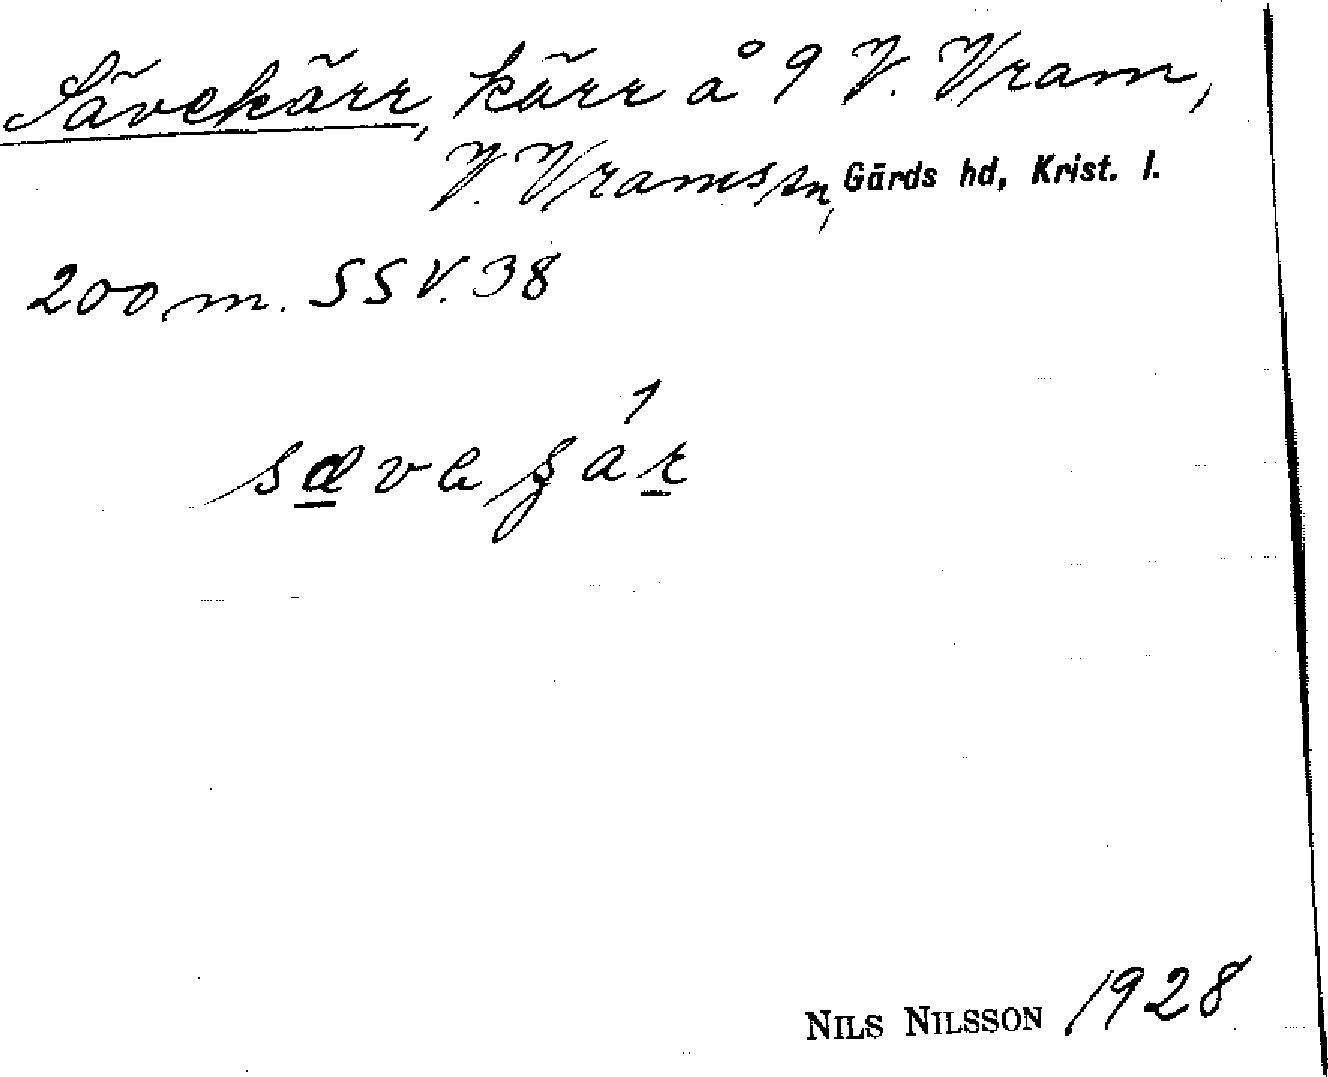 Sävekärr, kärr å 9 V. Vram,
V. Vrams sn, Gärds hd, Krist. l.
200 m. SSV. 38
1
NILS NILSSON 1928